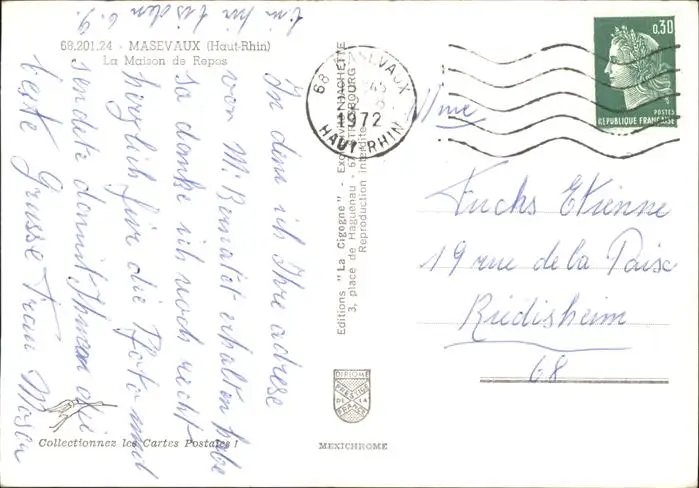 68.201.24 - MASEVAUX (Haut-Rhin)
La Maison de Repos
In dem ich Ihre adresse
von M. erhalten habe
so danke ich noch recht
herzlich für die Photo und
sendete damit Ihnen die
beste Grusse Frau
bin bis
Collectionnez les Cartes Postales !
Editions "La Cigogne" - Exclusivité HACHETTE
3, place de Haguenau - 67-STRASBOURG
Reproduction interdite
DIPLOME
PRESTIGE
DE LA
FRANCE
MEXICHROME
68 MASEVAUX
1972
HAUT-RHIN
0,30
POSTES
REPUBLIQUE FRANÇAISE
Mme
Fuchs Etienne
19 rue de la Paix
Riedisheim
68